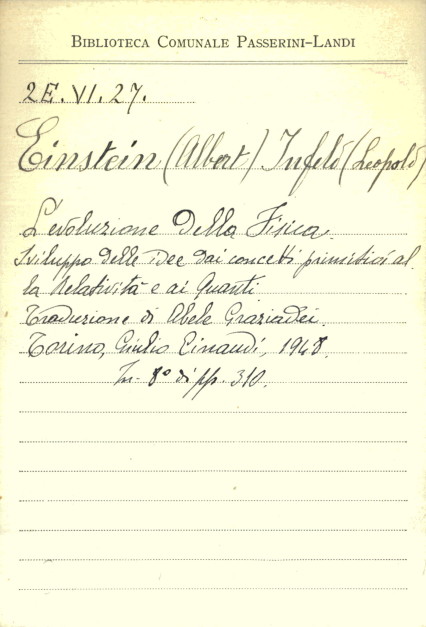 BIBLIOTECA COMUNALE PASSERINI-LANDI
2E.VI.27.
Einstein (Albert) Infeld (Leopold)
L'evoluzione della Fisica.
Sviluppo delle idee dai concetti primitivi al
la Relatività e ai Quanti
Traduzione di Abele Graziadei.
Torino, Giulio Einaudi, 1948.
In-8° di pp. 310.